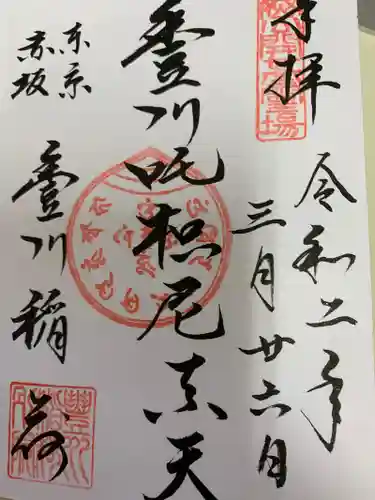 奉拝
令和二年
三月廿六日
豊川吒枳尼真天
東京
赤坂
豊川稲荷